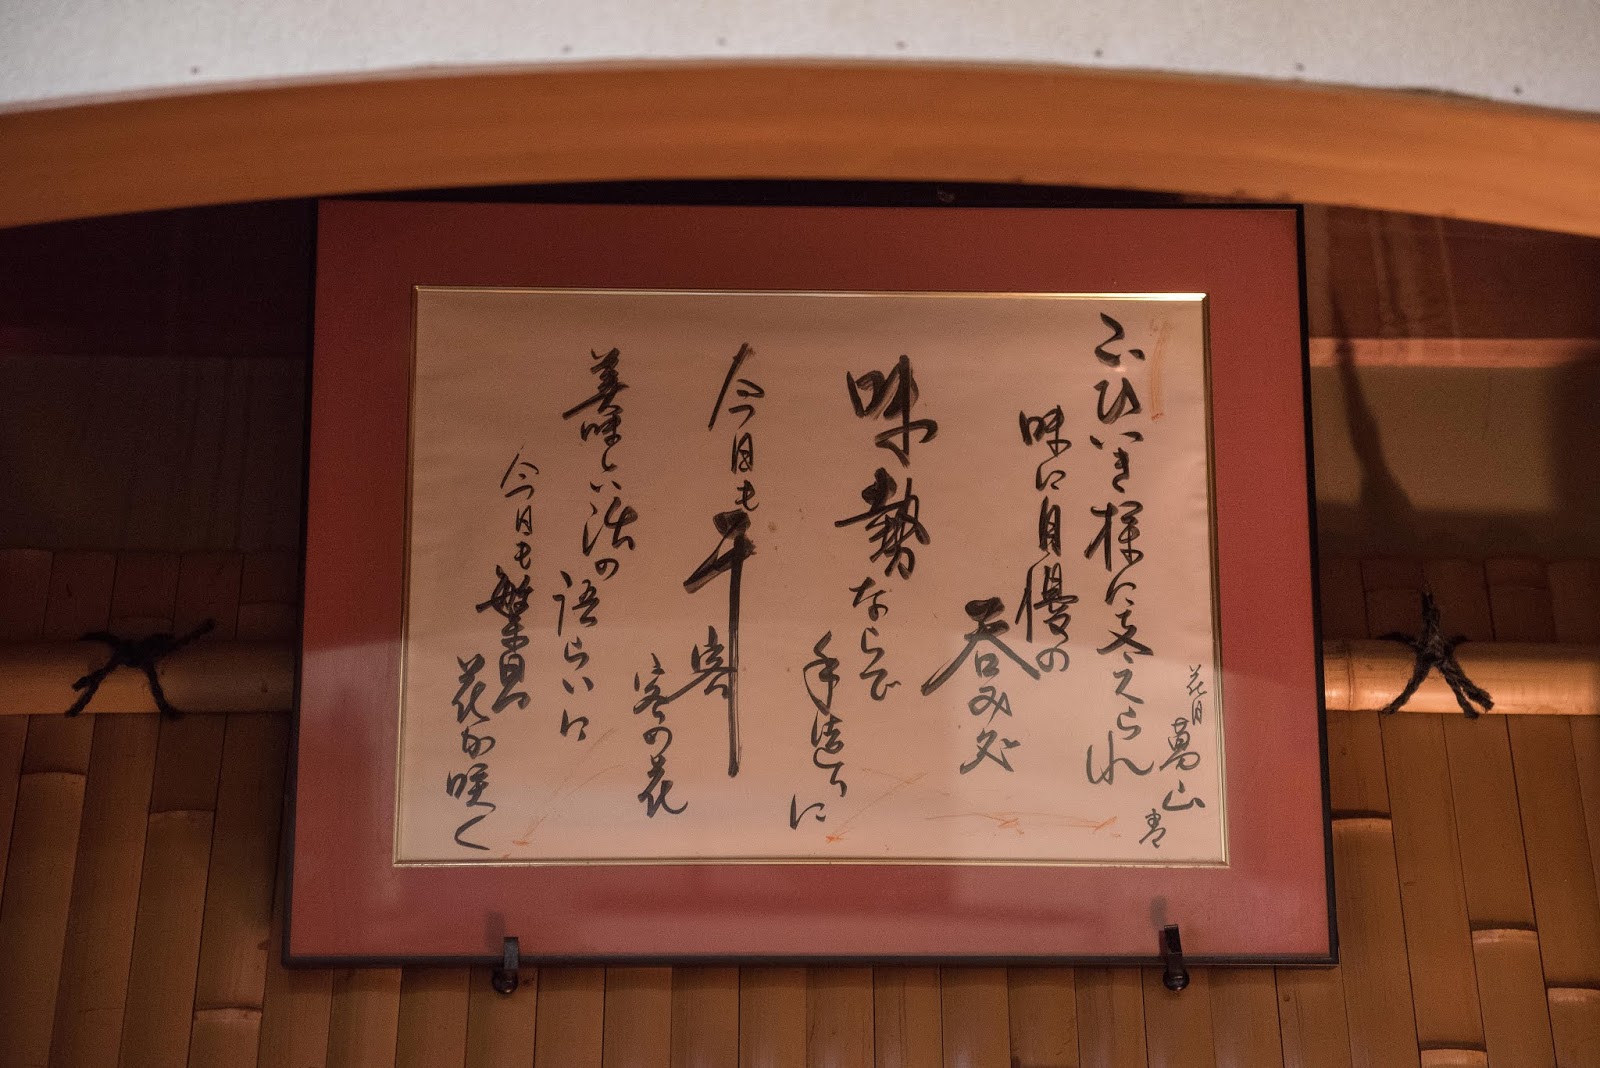 ごひいき様に支えられ
味に自優の
呑み処
味勢ならで
手造りに
今日も千客
客の花
美味い活の
語らいに
今日も繁昌
花が咲く
花月 萬山 書